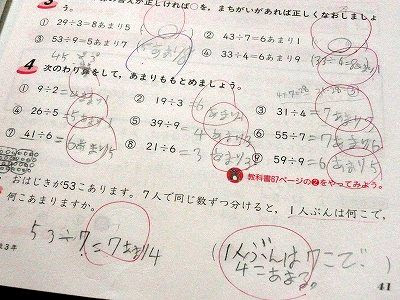 が正しければ○を、まちがいがあれば正しくなおしましょ
う。
① 29÷3=8あまり5
② 43÷7=6あまり1
③ 53÷9=5あまり7
④ 33÷4=9あまり9
4 次のわり算をして、あまりももとめましょう。
① 9÷2=
② 19÷3=6
③ 31÷4=7あまり3
④ 26÷5=5あまり
⑤ 39÷9=4あまり3
⑥ 55÷7=7あまり
⑦ 41÷6=6あまり5
⑧ 21÷6=3あまり3
⑨ 59÷9=6あまり5
教科書67ページの❷をやってみよう。
おはじきが53こあります。7人で同じ数ずつ分けると、1人ぶんは何こで、
何こあまりますか。
53÷7=7あまり4
(1人ぶんは7こで、
4こあまる。)
3年
41